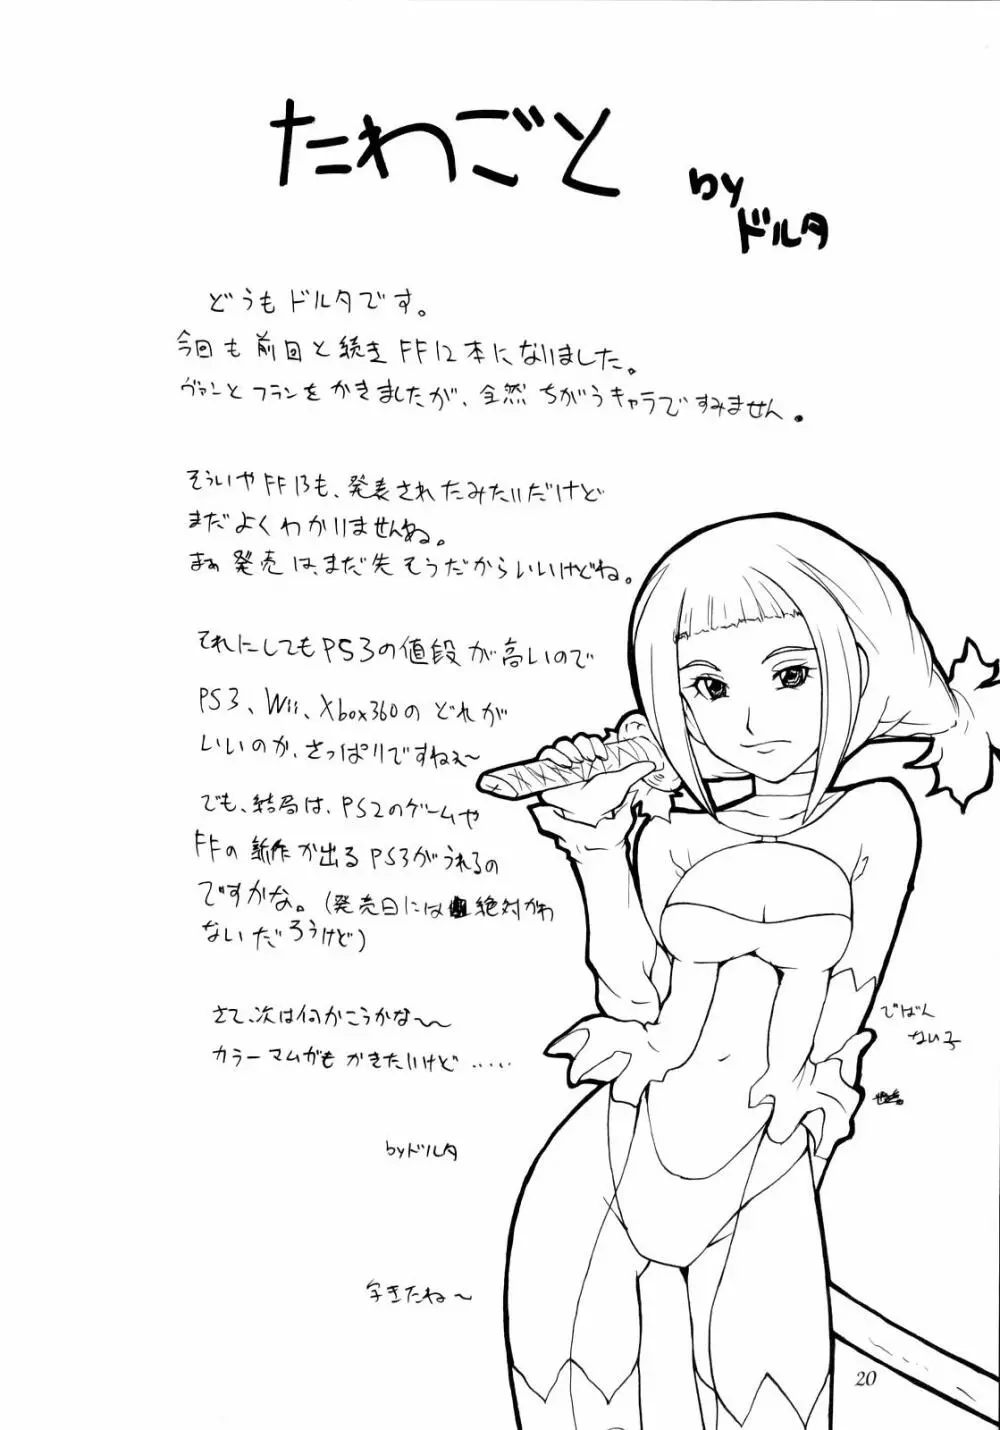 たわごと
by
ドルタ
どうもドルタです。
今回も前回と続きFF12本になりました。
ヴァンとフランをかきましたが、全然ちがうキャラですみません。
そういやFF13も、発表されたみたいだけど
まだよくわかりませんね。
まぁ発売は、まだ先そうだからいいけどね。
それにしてもPS3の値段が高いので
PS3、Wii、Xbox360のどれが
いいのか、さっぱりですねぇ〜
でも、結局は、PS2のゲームや
FFの新作が出るPS3がうれるの
ですかな。(発売日には絶対かわ
ないだろうけど)
さて、次は何かこうかな〜〜
カラーマムガもかきたいけど‥‥‥
byドルタ
字きたね〜
でばん
ない子
20